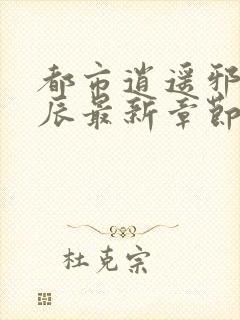 都市逍遥邪
辰最新章節
杜克宗